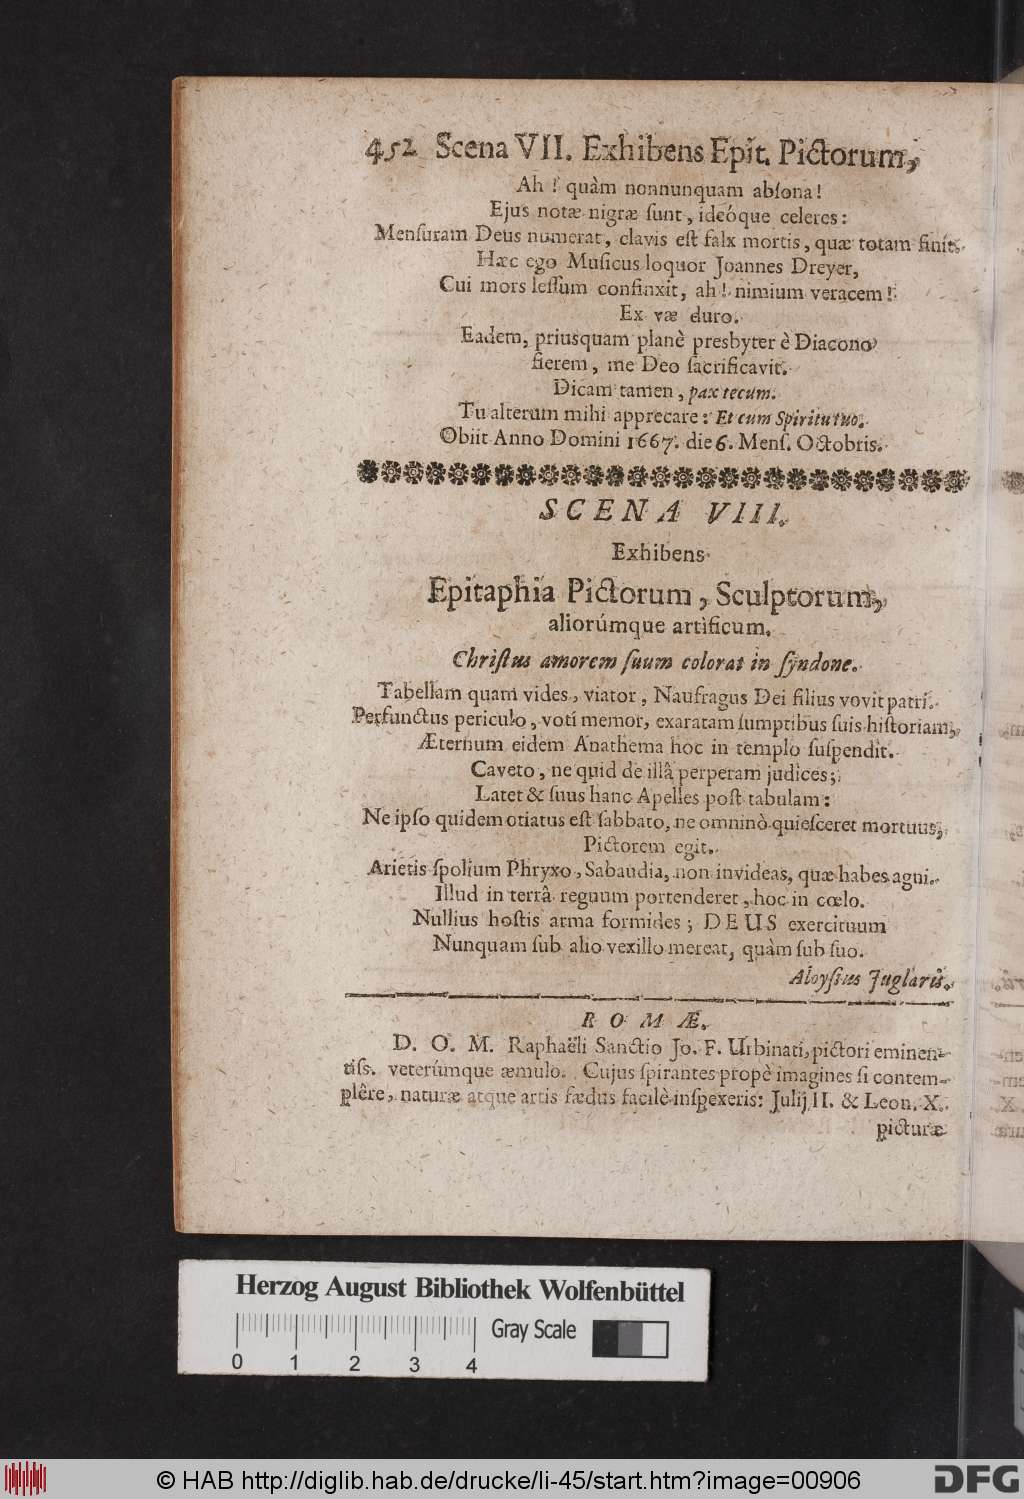 452 Scena VII. Exhibens Epit. Pictorum,
Ah! quàm nonnunquam absona!
Ejus notæ nigræ ſunt, ideóque celeres:
Menſuram Deus numerat, clavis eſt falx mortis, quæ totam finit.
Hæc ego Muſicus loquor Joannes Dreyer,
Cui mors leſſum confinxit, ah! nimium veracem!
Ex væ duro.
Eadem, priusquam planè presbyter è Diacono
fierem, me Deo ſacrificavit.
Dicam tamen, pax tecum.
Tu alterum mihi apprecare: Et cum Spiritu tuo.
Obiit Anno Domini 1667. die 6. Menſ. Octobris.
SCENA VIII.
Exhibens
Epitaphia Pictorum, Sculptorum,
aliorúmque artificum.
Chriſtus amorem ſuum colorat in ſyndone.
Tabellam quam vides, viator, Naufragus Dei filius vovit patri.
Perfunctus periculo, voti memor, exaratam ſumptibus ſuis hiſtoriam,
Æternum eidem Anathema hoc in templo ſuſpendit.
Caveto, ne quid de illâ perperam judices;
Latet & ſuus hanc Apelles poſt tabulam:
Ne ipſo quidem otiatus eſt ſabbato, ne omninò quieſceret mortuus,
Pictorem egit.
Arietis ſpolium Phryxo, Sabaudia, non invideas, quæ habes agni.
Illud in terrâ regnum portenderet, hoc in cœlo.
Nullius hoſtis arma formides; DEUS exercituum
Nunquam ſub alio vexillo mereat, quàm ſub ſuo.
Aloyſius Juglaris.
ROMÆ.
D. O. M. Raphaëli Sanctio Jo. F. Urbinati, pictori eminen-
tiſſ. veterúmque æmulo. Cujus ſpirantes propè imagines ſi contem-
plêre, naturæ atque artis fædus facilè inſpexeris: Julij II. & Leon. X.
picturæ
Herzog August Bibliothek Wolfenbüttel
0 1 2 3 4
Gray Scale
© HAB http://diglib.hab.de/drucke/li-45/start.htm?image=00906
DFG